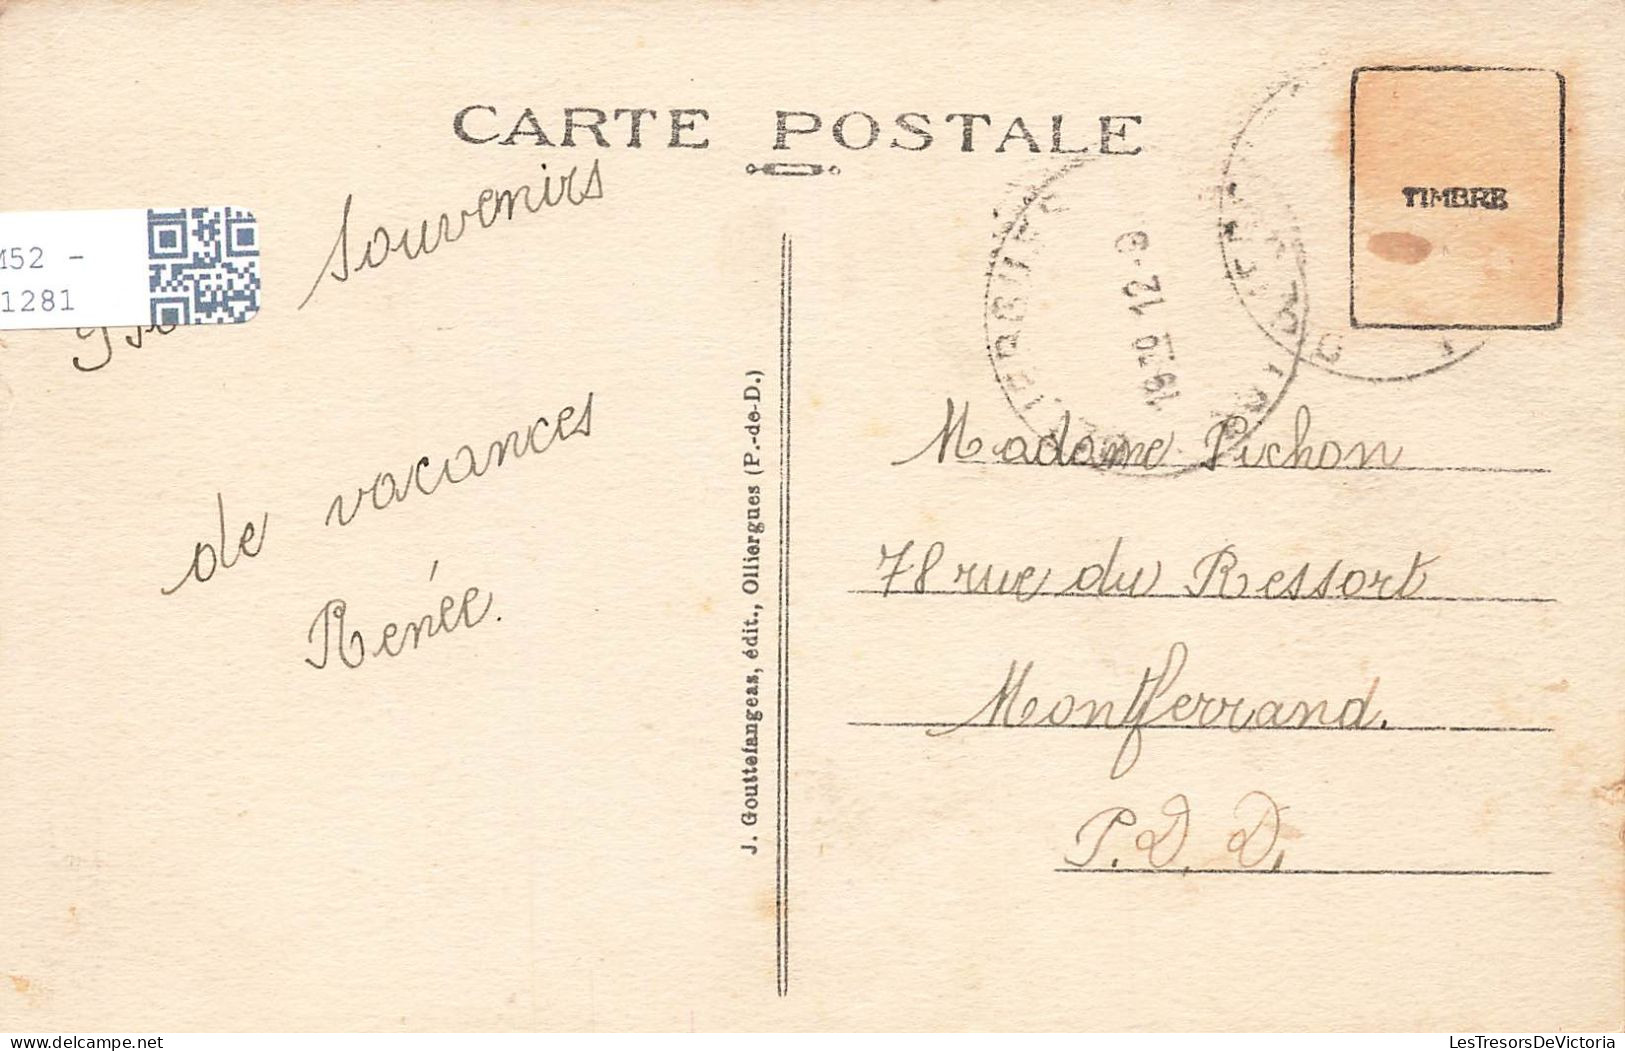 CARTE POSTALE
TIMBRE
M52 -
1281
Souvenirs
de vacances
Renée.
J. Gouttefangeas, édit., Olliergues (P.-de-D.)
12-9
Madame Pichon
78 rue du Ressort
Montferrand.
P. D. D.
LesTresorsDeVictoria
delcampe.net